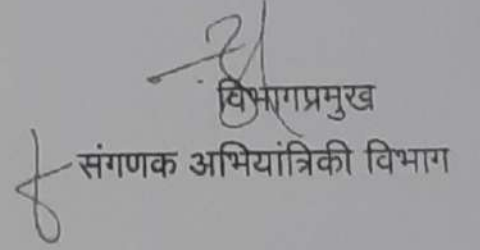 विभागप्रमुख
संगणक अभियांत्रिकी विभाग